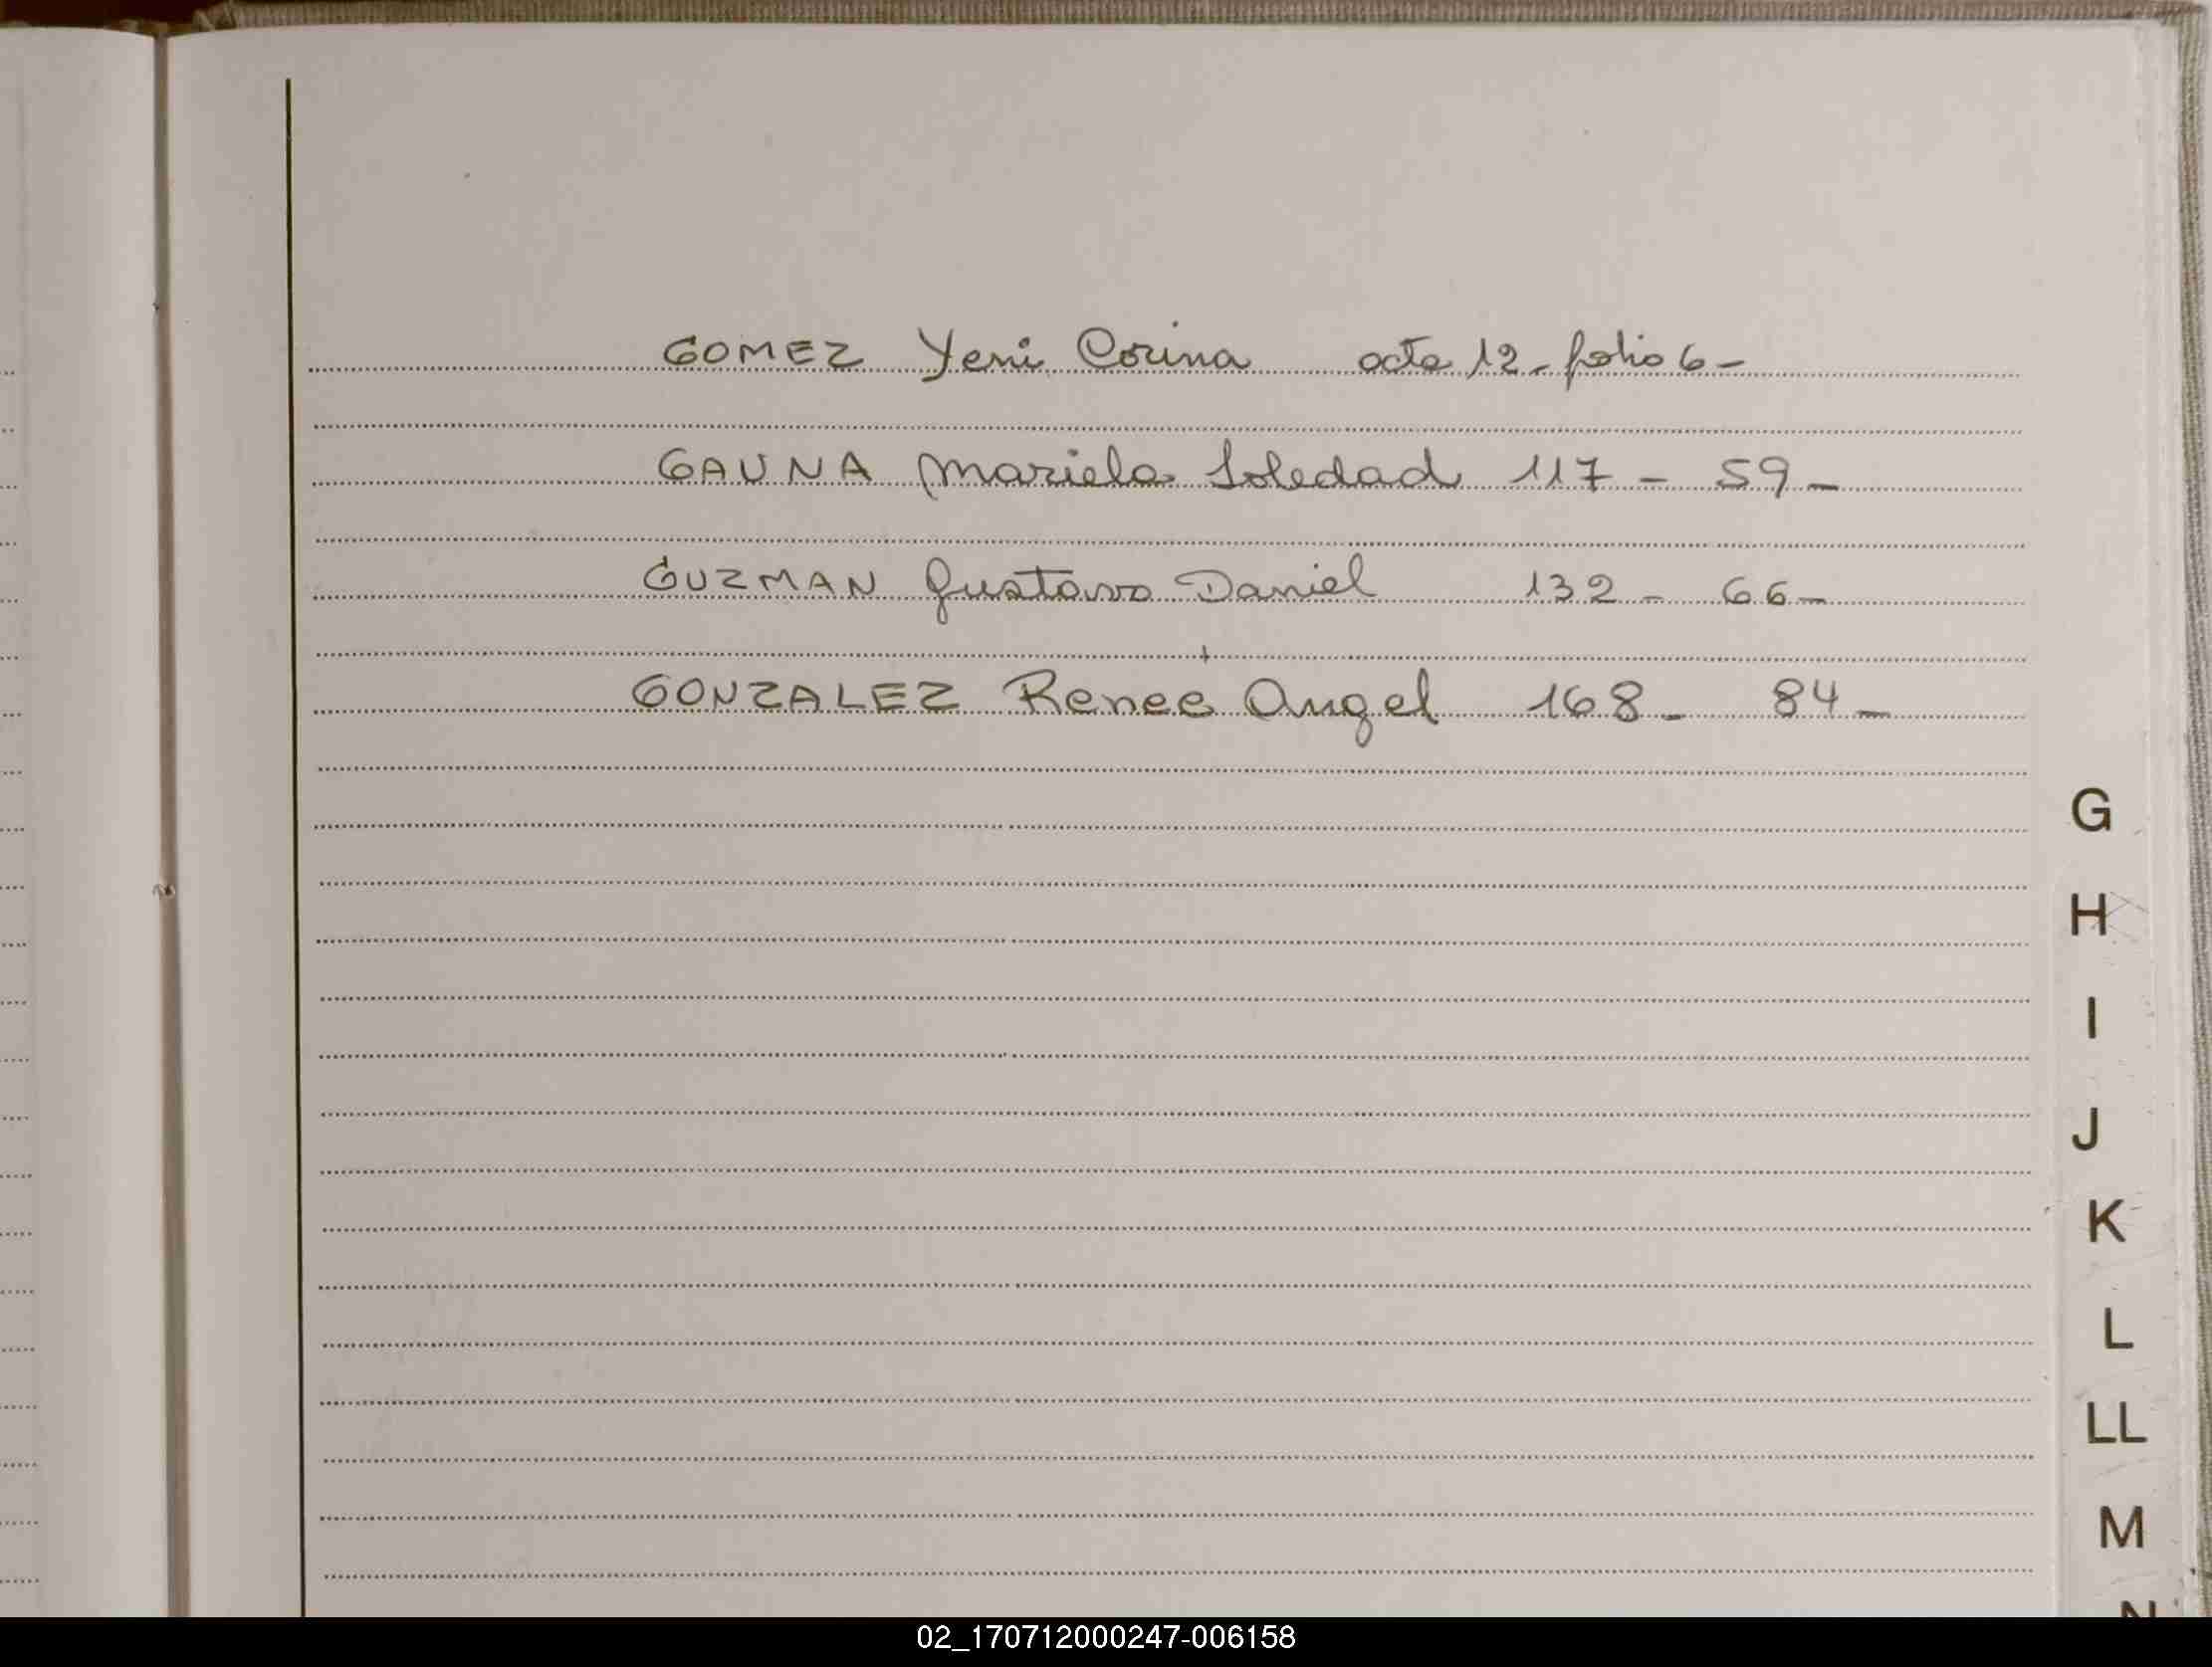 GOMEZ Yeni Corina acta 12 - folio 6 -
GAUNA Mariela Soledad 117 - 59 -
GUZMAN Gustavo Daniel 132 - 66 -
GONZALEZ Renee Angel 168 - 84 -
G
H
I
J
K
L
LL
M
N
02_170712000247-006158